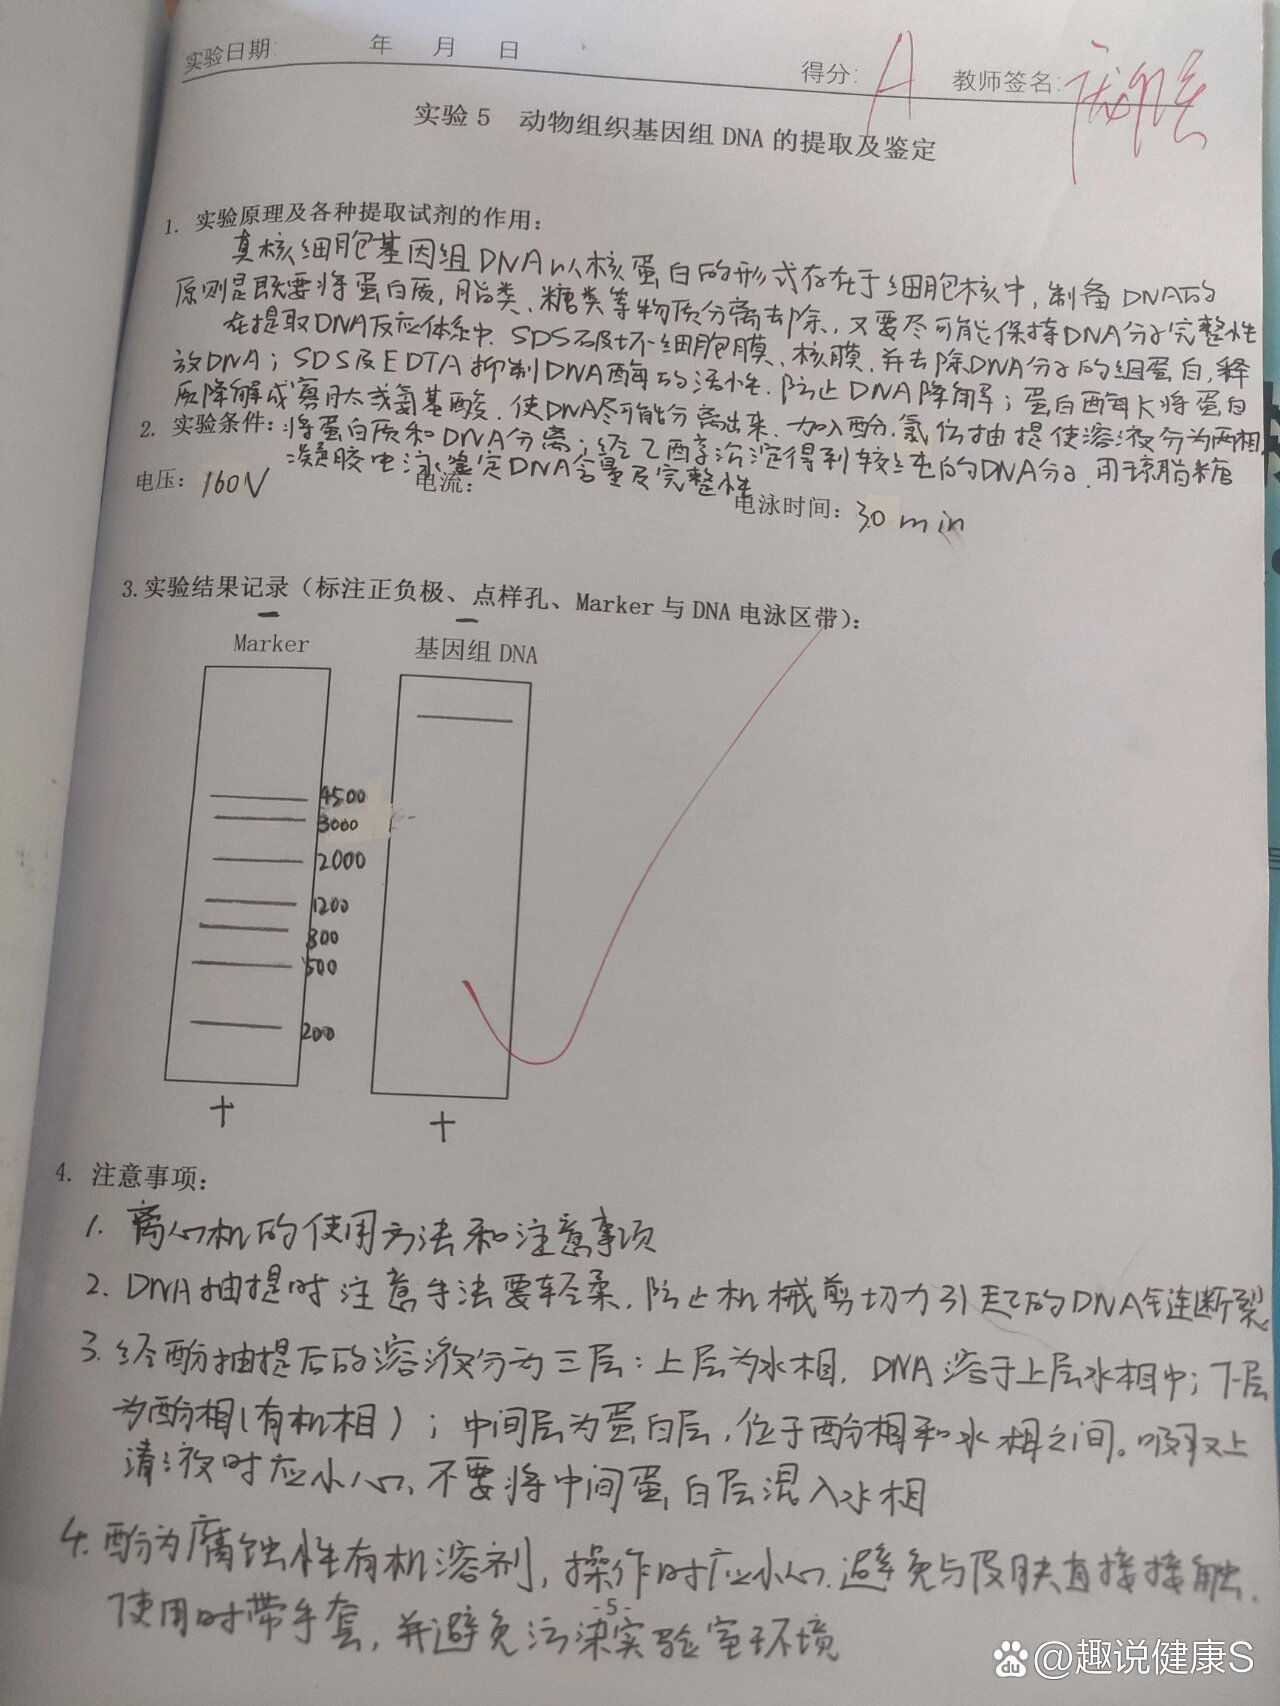 实验日期: 年 月 日
得分: A 教师签名:
实验 5 动物组织基因组 DNA 的提取及鉴定
1. 实验原理及各种提取试剂的作用:
真核细胞基因组DNA以核蛋白的形式存在于细胞核中,制备DNA的
原则是既要将蛋白质,脂类、糖类等物质分离去除,又要尽可能保持DNA分子完整性
在提取DNA反应体系中.SDS破坏细胞膜、核膜,并去除DNA分子的组蛋白,释
放DNA;SDS及EDTA抑制DNA酶的活性.防止DNA降解;蛋白酶K将蛋白
质降解成寡肽或氨基酸.使DNA尽可能分离出来.加入酚.氯仿抽提使溶液分为两相
2. 实验条件: 将蛋白质和DNA分离;经乙醇沉淀得到较纯的DNA分子.用琼脂糖
凝胶电泳鉴定DNA含量及完整性
电压: 160V 电流: 电泳时间: 30 min
3.实验结果记录(标注正负极、点样孔、Marker 与 DNA 电泳区带):
− −
Marker 基因组 DNA
4500
3000
2000
1200
800
500
200
+ +
4. 注意事项:
1. 离心机的使用方法和注意事项
2. DNA抽提时注意手法要轻柔.防止机械剪切力引起的DNA链断裂
3. 经酚抽提后的溶液分为三层:上层为水相.DNA溶于上层水相中;下层
为酚相(有机相);中间层为蛋白层,位于酚相和水相之间。吸取上
清液时应小心,不要将中间蛋白层混入水相
4. 酚为腐蚀性有机溶剂,操作时应小心.避免与皮肤直接接触.
使用时带手套,并避免污染实验室环境
-5-
du @趣说健康S